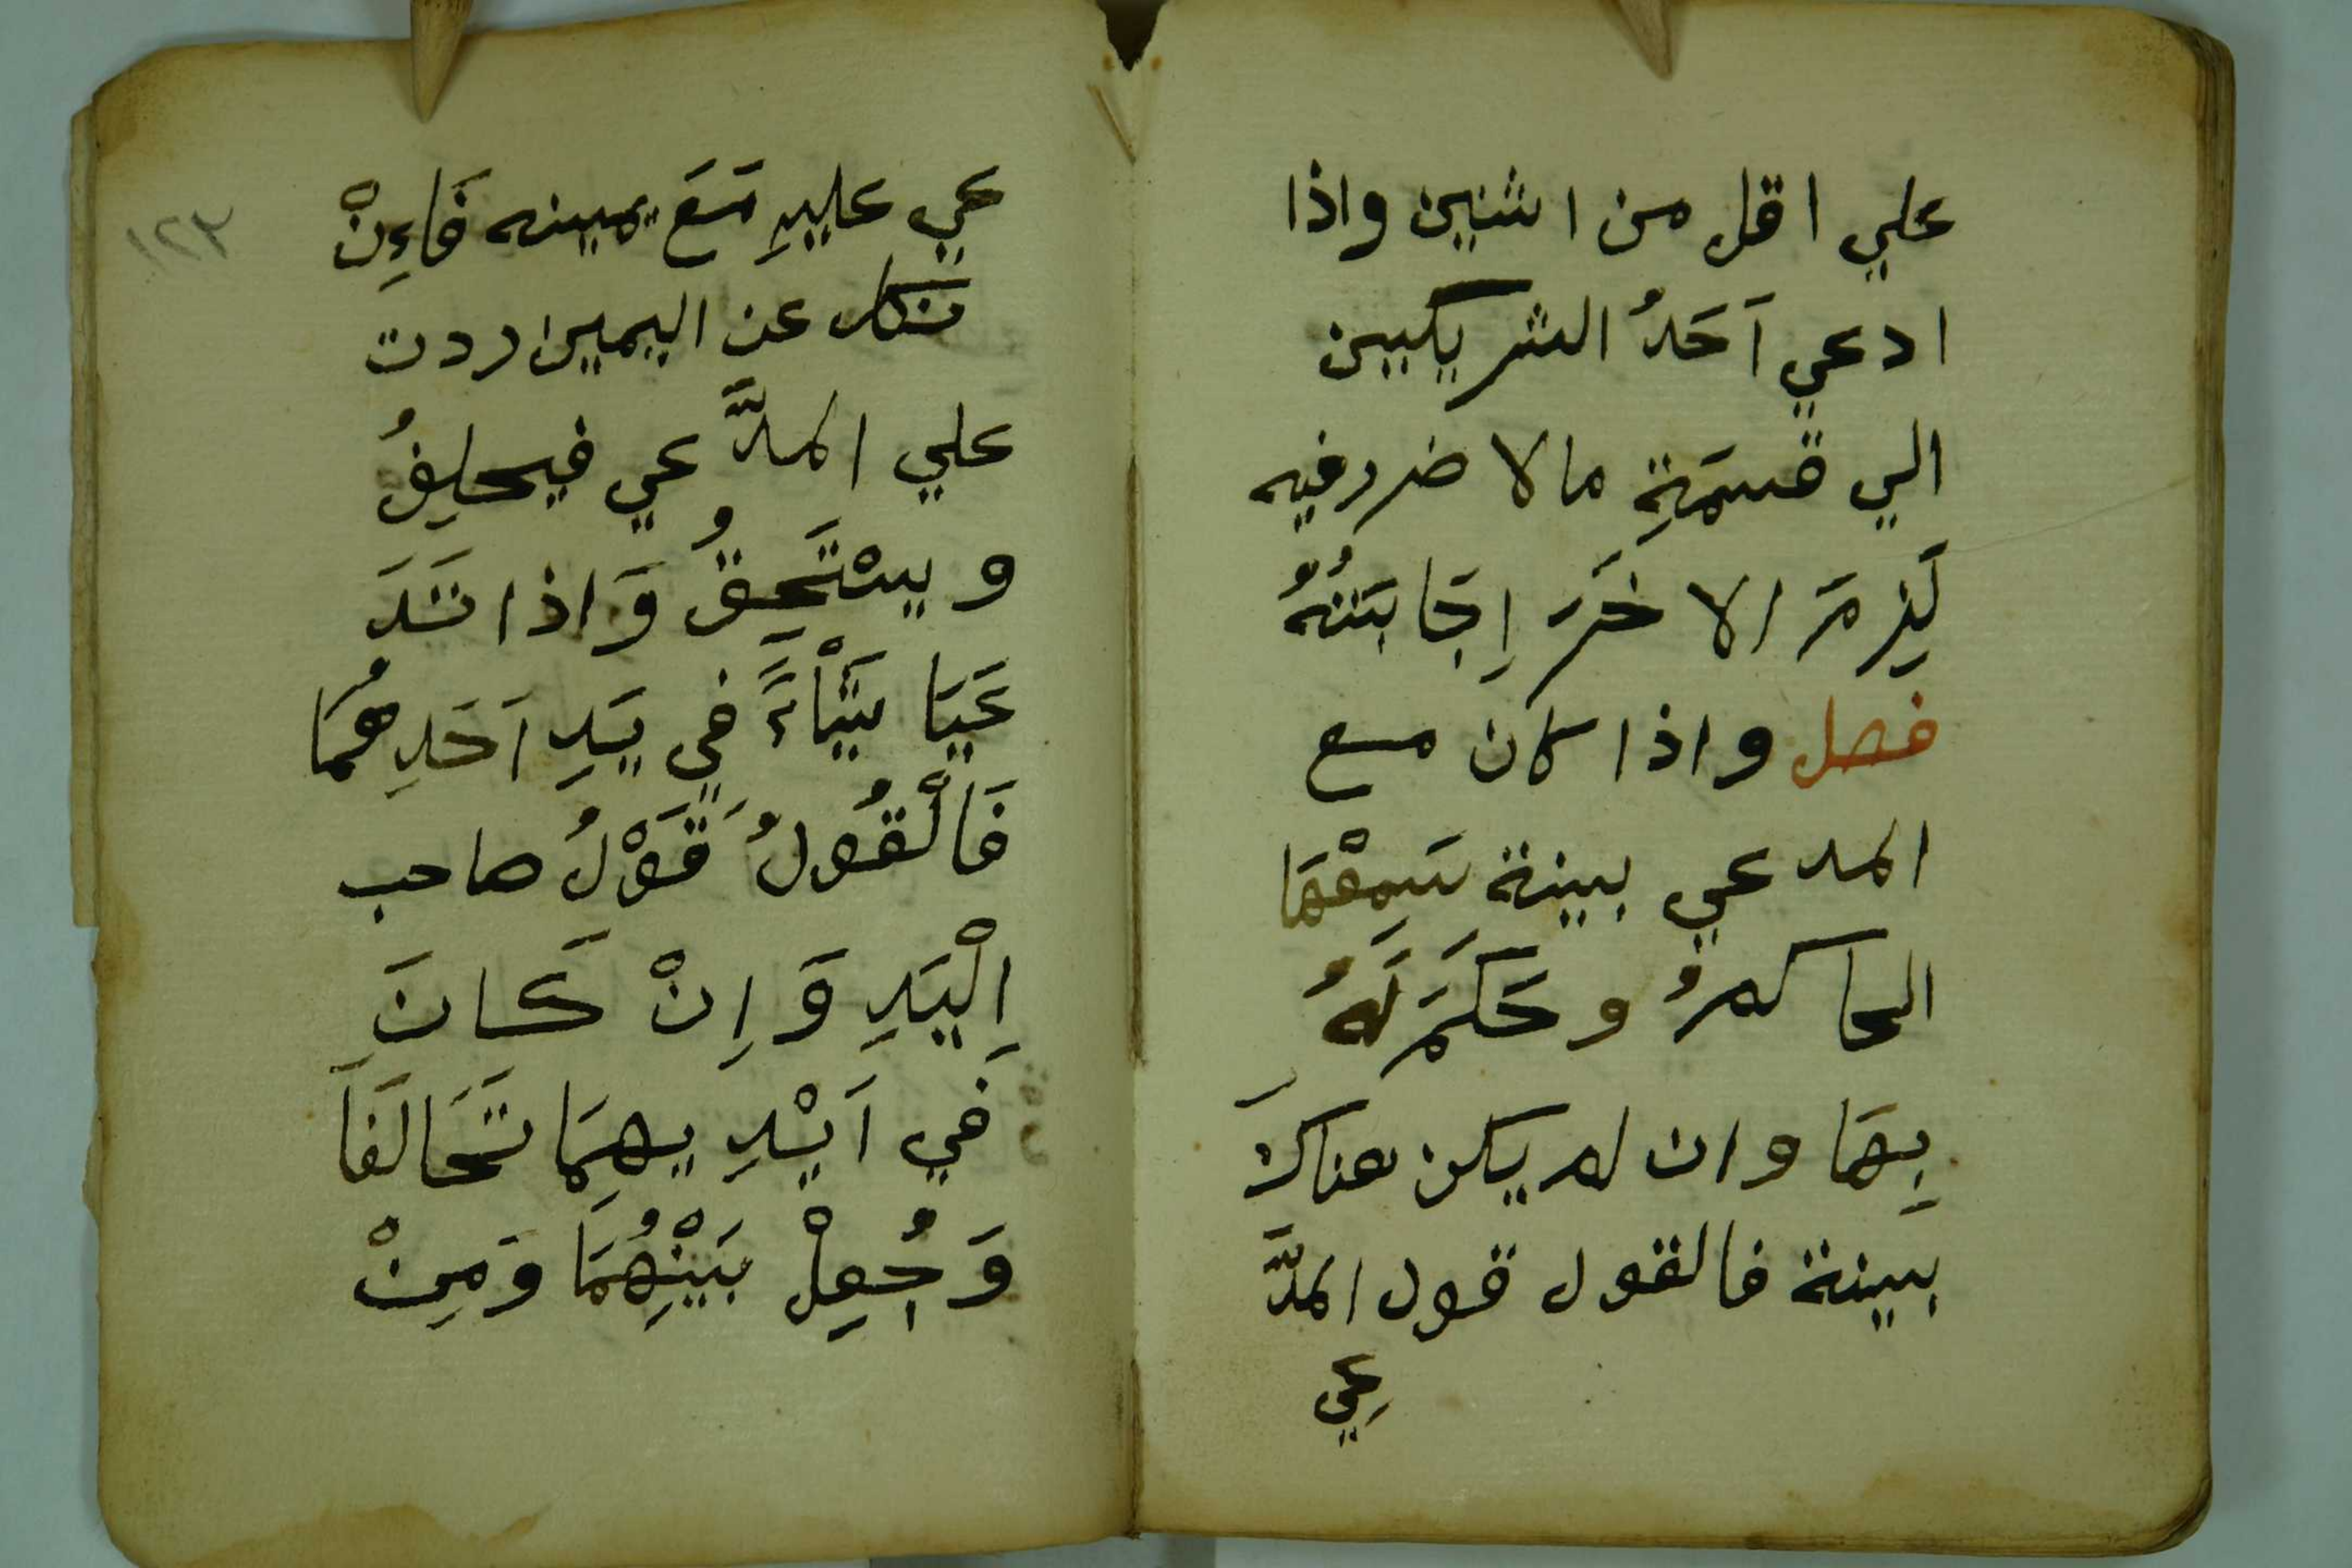 علي اقل من اثنين واذا
ادعي اَحَدُ الشريكيين
الي قسمَةِ مالا ضرر فيه
لَزِمَ الاخَرَ اِجَابَتُهُ
فصل واذا كان مع
المدعي بينة سَمِعْهَا
الحاكمُ وحَكَمَ لَهُ
بِهَا وان لم يكن هناكَ
بيينة فالقول قول المدَّ
عِي
عي علييهِ مَعَ يميينه فَاءِنْ
نَكل عن اليمين ردت
علي المدَّعي فيحلِفُ
ويسْتَحِقُ وَاذا تَدَ
عَيَا شَيْاءً في يَدِ اَحَدِهُمَا
فَالْقُولُ قَوْلُ صاحب
اِلْيَدِ وَاِنْ كَانَ
فَي اَيْدِيهِمَا تَحَالَفَا
وَجُعِلْ بَيْنِهُمَا وَمِنْ
١٢٣